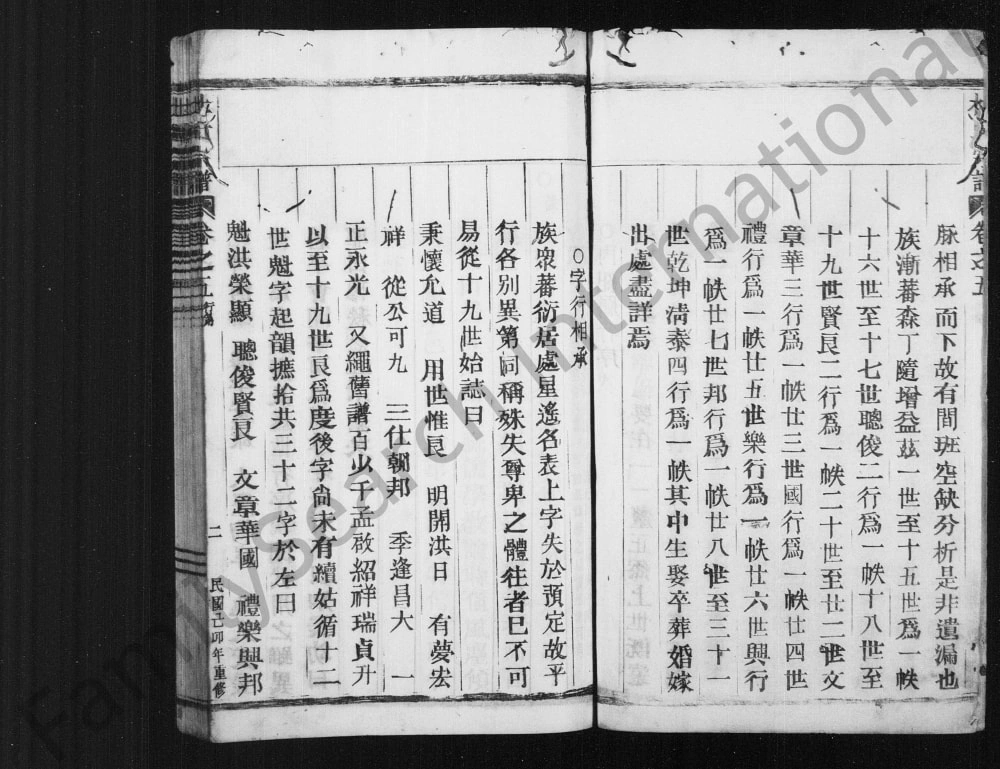 脉相承而下故有間班空缺分析是非遺漏也
族漸蕃森丁隨增益茲一世至十五世爲一帙
十六世至十七世聰俊二行爲一帙十八世至
十九世賢良二行爲一帙二十世至廿二世文
章華三行爲一帙廿三世國行爲一帙廿四世
禮行爲一帙廿五世樂行爲一帙廿六世興行
爲一帙廿七世邦行爲一帙廿八世至三十一
世乾坤清泰四行爲一帙其中生娶卒葬婚嫁
出處盡詳焉
卷之五
○字行相承
族眾蕃衍居處星遙各表上字失於預定故平
行各别異第同稱殊失尊卑之體往者已不可
易從十九世始誌曰
秉懷允道 用世惟良 明開洪日 有夢宏
祥 從公可九 三仕朝邦 季逢昌大 一
正永光 又繩舊譜百少千孟啟紹祥瑞貞升
以至十九世良爲度後字尚未有續姑循十一
世魁字起韻摭拾共三十二字於左曰
魁洪榮顯 聰俊賢良 文章華國 禮樂興邦
譜 卷之五 二 民國己卯年重修
FamilySearch International